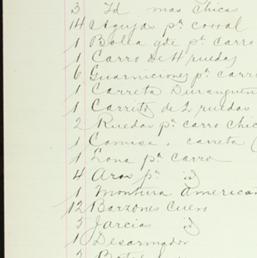 3 Id mas chicas
14 Agujas pª corral
1 Bolea gde pª carro
1 Carro de 4 ruedas
6 Guarniciones pª carro
1 Carreta Duranguen
1 Carreta de 2 ruedas
2 Ruedas pª carro chic
1 Camisa " carreta
1 Lona pª carro
4 pª
1 Montura american
12 Barzones Cuero
3 Jarcia
1 Desarmador